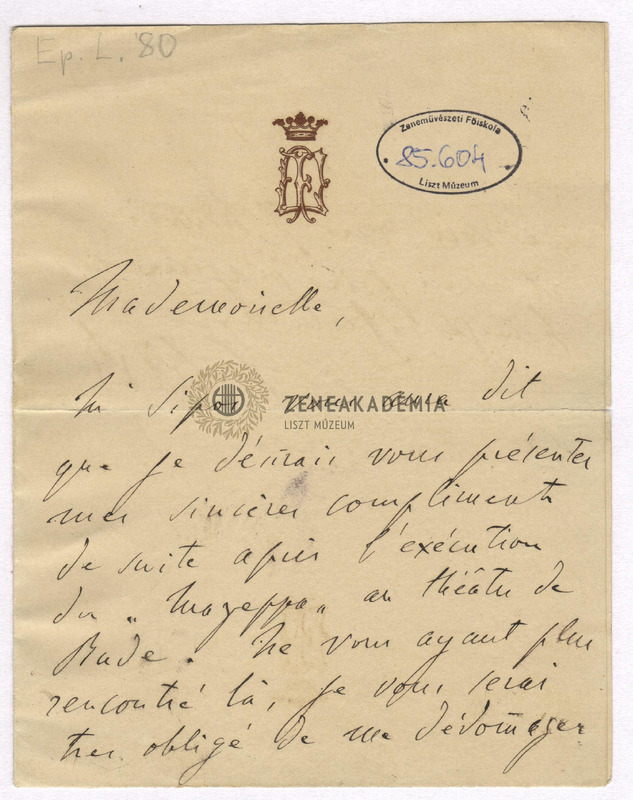 Ep. L. 80
Zeneművészeti Főiskola
85.604
Liszt Múzeum
Mademoiselle,
Mr Sipos vous aura dit
ZENEAKADÉMIA
LISZT MÚZEUM
que je désirais vous présenter
mes sincères compliments
de suite après l'exécution
du „Mazeppa" au théâtre de
Bade. Ne vous ayant plus
rencontré là, je vous serai
très obligé de me dédomager